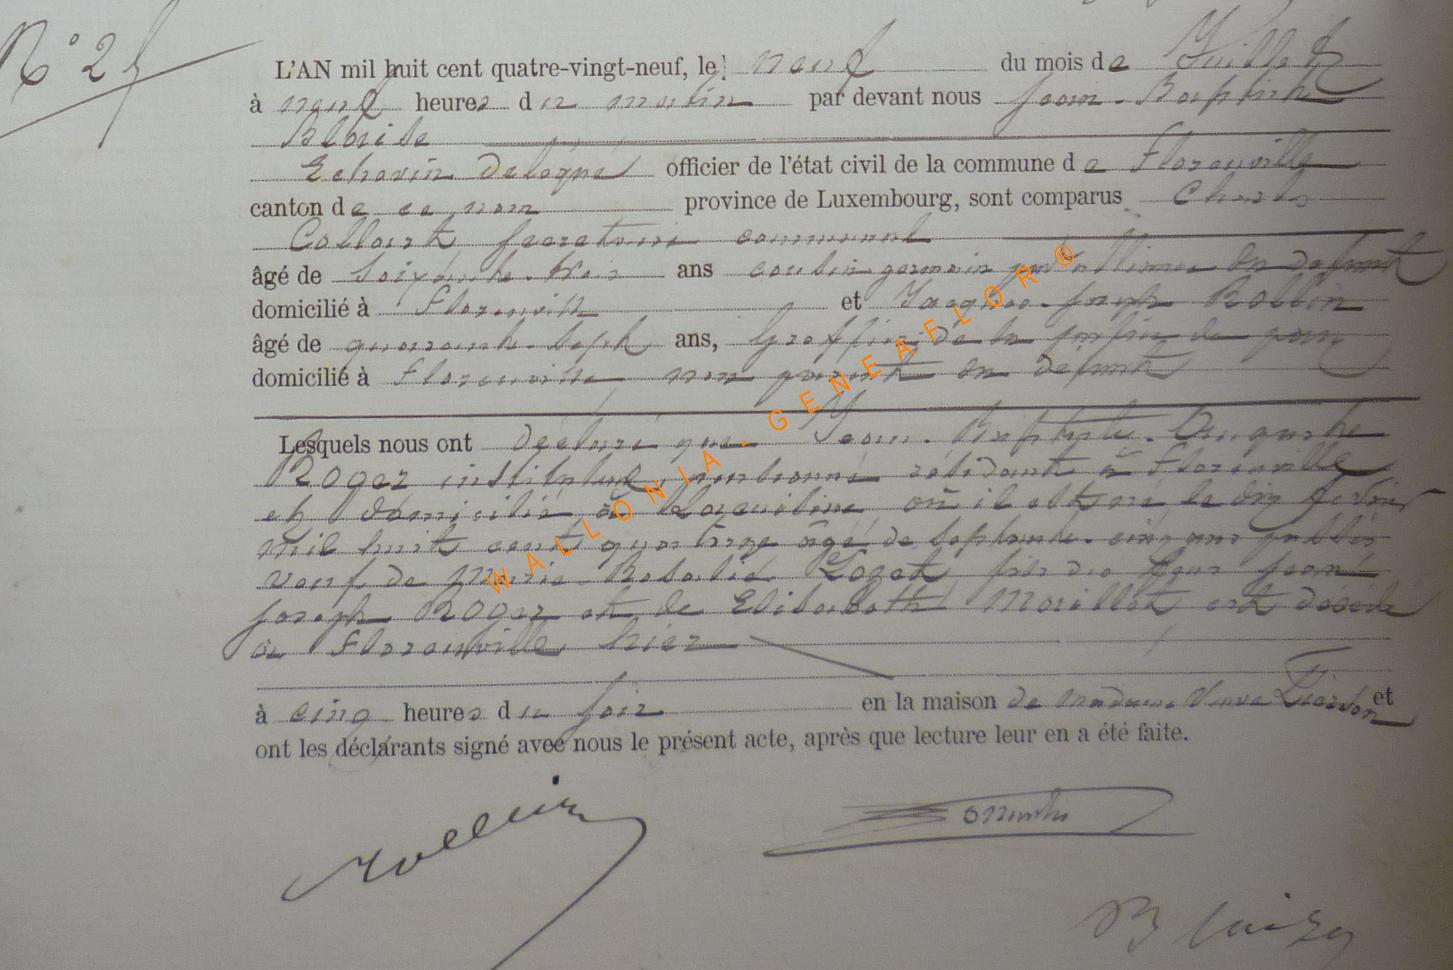 N° 25
L'AN mil huit cent quatre-vingt-neuf, le neuf du mois de Juillet
à neuf heures du matin par devant nous Jean-Baptiste
Blaise
Echevin délégué officier de l'état civil de la commune de Florenville
canton de ce nom province de Luxembourg, sont comparus Charles
Collart secretaire communal
âgé de soixante-trois ans cousin germain du défunt
domicilié à Florenville et Jacques-Joseph Rollin
âgé de quarante-sept ans, Greffier de la justice de paix
domicilié à Florenville non parent au défunt
Lesquels nous ont déclaré que Jean-Baptiste-
Roger instituteur pensionné résidant à Florenville
et domicilié à où il est né le dix février
mil huit cent quatorze âgé de septante-cinq ans
veuf de Marie-Rosalie Lozet, fils de feux Jean
Joseph Roger et de Elisabeth Morillot est décédé
à Florenville hier
à cinq heures du soir en la maison de madame Veuve et
ont les déclarants signé avec nous le présent acte, après que lecture leur en a été faite.
Rollin
WALLONIA-GENEAFLOR®